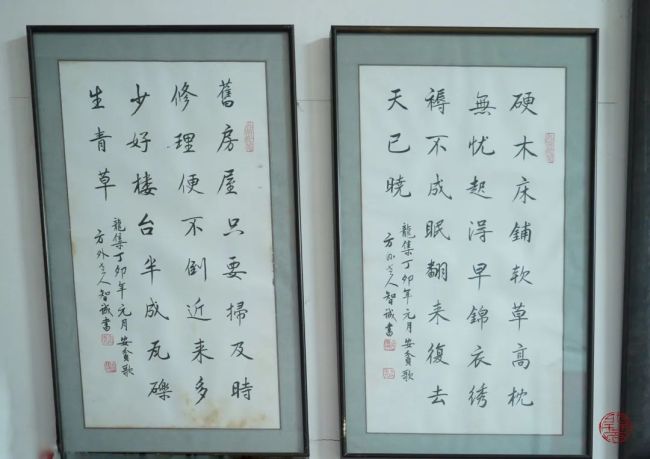 硬木床鋪軟草高枕
無忧起淂早錦衣绣
褥不成眠翻来復去
天已曉
龍集丁卯年元月安貧歌
方外道人智诚書
舊房屋只要掃及時
修理便不倒近来多
少好楼台半成瓦礫
生青草
龍集丁卯年元月安貧歌
方外道人智诚書